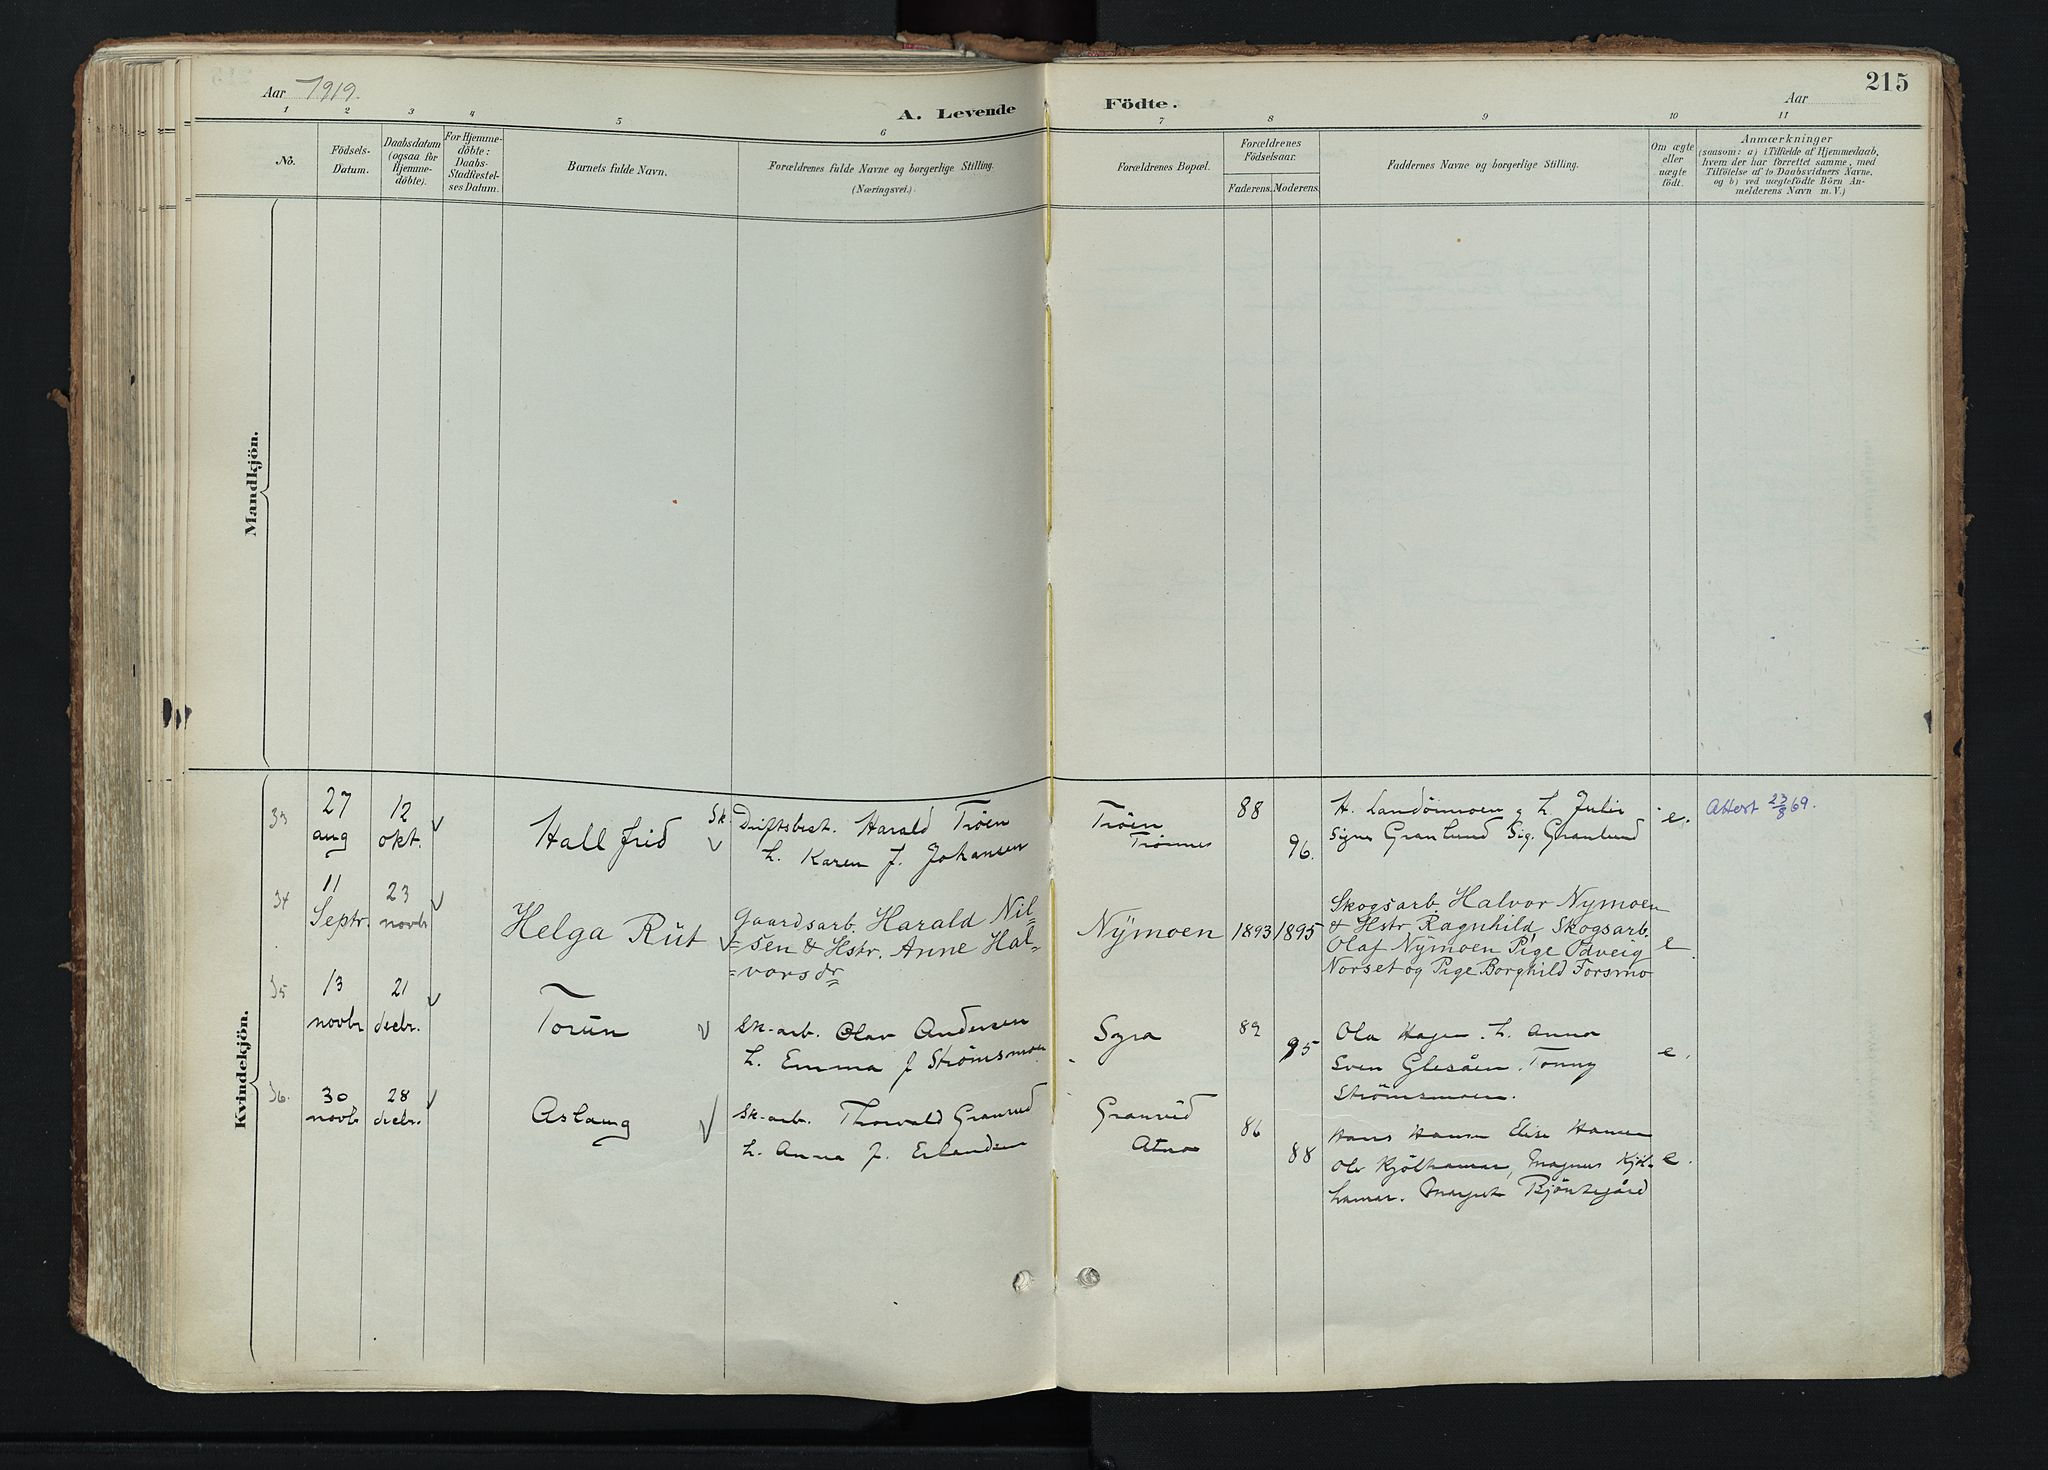 215
Aar 1919.
A. Levende
Födte.
Aar
1 2 3 4 5 6 7 8 9 10 11
No.
Födsels-
Datum.
Daabsdatum
(ogsaa for
Hjemme-
döbte).
For Hjemme-
döbte:
Daabs-
Stadfæstel-
ses Datum.
Barnets fulde Navn.
Forældrenes fulde Navne og borgerlige Stilling.
(Næringsvei.)
Forældrenes Bopæl.
Forældrenes
Födselsaar.
Faderens. Moderens.
Faddernes Navne og borgerlige Stilling.
Om ægte
eller
uægte
födt.
Anmærkninger
(saasom: a) i Tilfælde af Hjemmedaab,
hvem der har forrettet samme, med
Tilföielse af to Daabsvidners Navne,
og b) ved uægtefödte Börn An-
melderens Navn m. V.)
Mandkjön.
Kvindekjön.
33 27 aug 12 okt. v
Hall frid v
Driftsbest. Harald Tröen
h. Karen f. Johansen
Tröen
Trönnes
88
96.
H. Landöimoen og h. Julie
Signe Granlund Sig. Granlund
e.
Attest 23/8 69.
34 11 Septr. 23 novbr v
Helga Rut v
Gaardsarb. Harald Nil=
=sen & Hstr. Anne Hal=
=vorsdr
Nymoen
1893 1895
Skogsarb. Halvor Nymoen
& Hstr. Ragnhild, Skogsarb.
Olaf Nymoen Pige Odveig
Norset og Pige Borghild Forsmo
e
35 13 novbr 21 decbr. v
Torun v
Sk-arb. Olav Andersen
h. Emma f Strömsmoen
Sogra
89
95
Ola Hagen. h. Anna
Sven Glesåen. Tonny
Strömsmoen.
e.
36. 30 novbr 28 decbr. v
Aslaug v
Sk-arb. Thorvald Granrud
h. Anna f. Erlandsen
Granrud
Atna
86
88
Hans Hansen Elise Hansen
Ole Kjölhamar, Magnus Kjöl-
hamar. Margrete Björtegård
e.